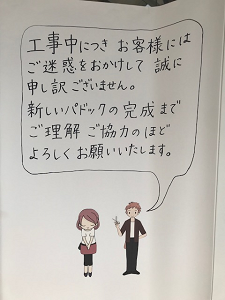 工事中につき お客様には
ご迷惑をおかけして 誠に
申し訳ございません。
新しいパドックの完成まで
ご理解 ご協力のほど
よろしくお願いいたします。